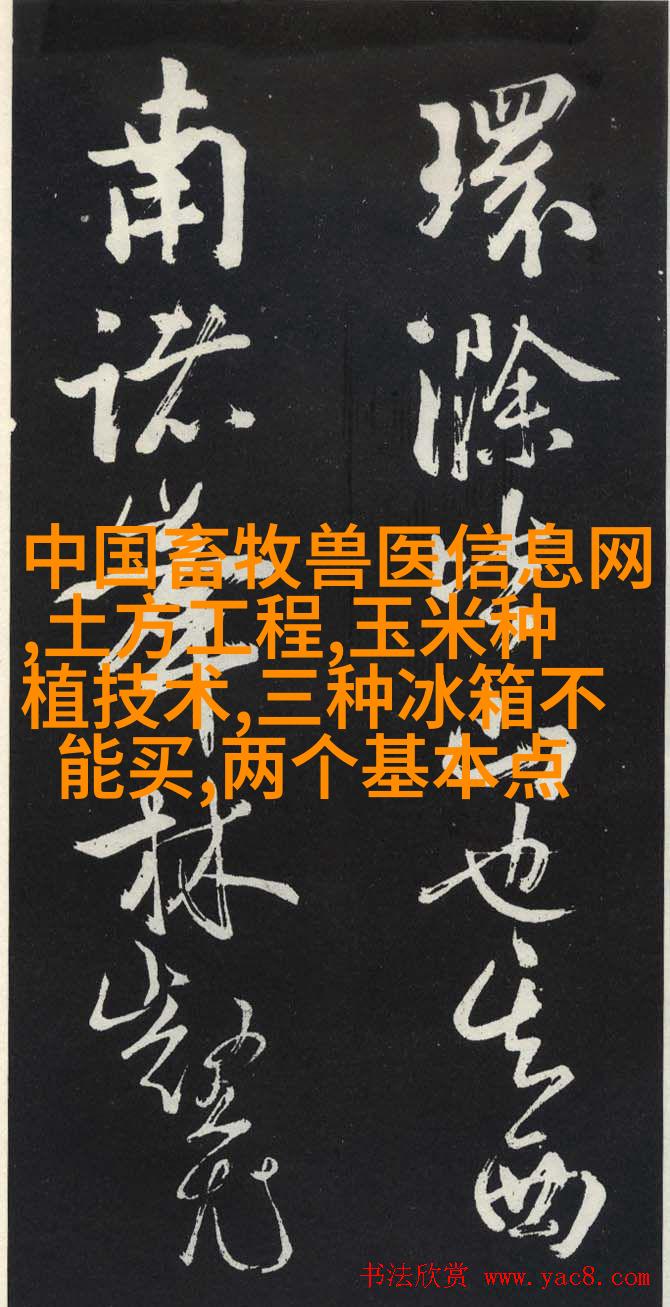 環滁皆山也其西
南諸峯林壑尤
中国畜牧兽医信息网
,土方工程,玉米种
植技术,三种冰箱不
能买,两个基本点
书法欣赏 www.yac8.com